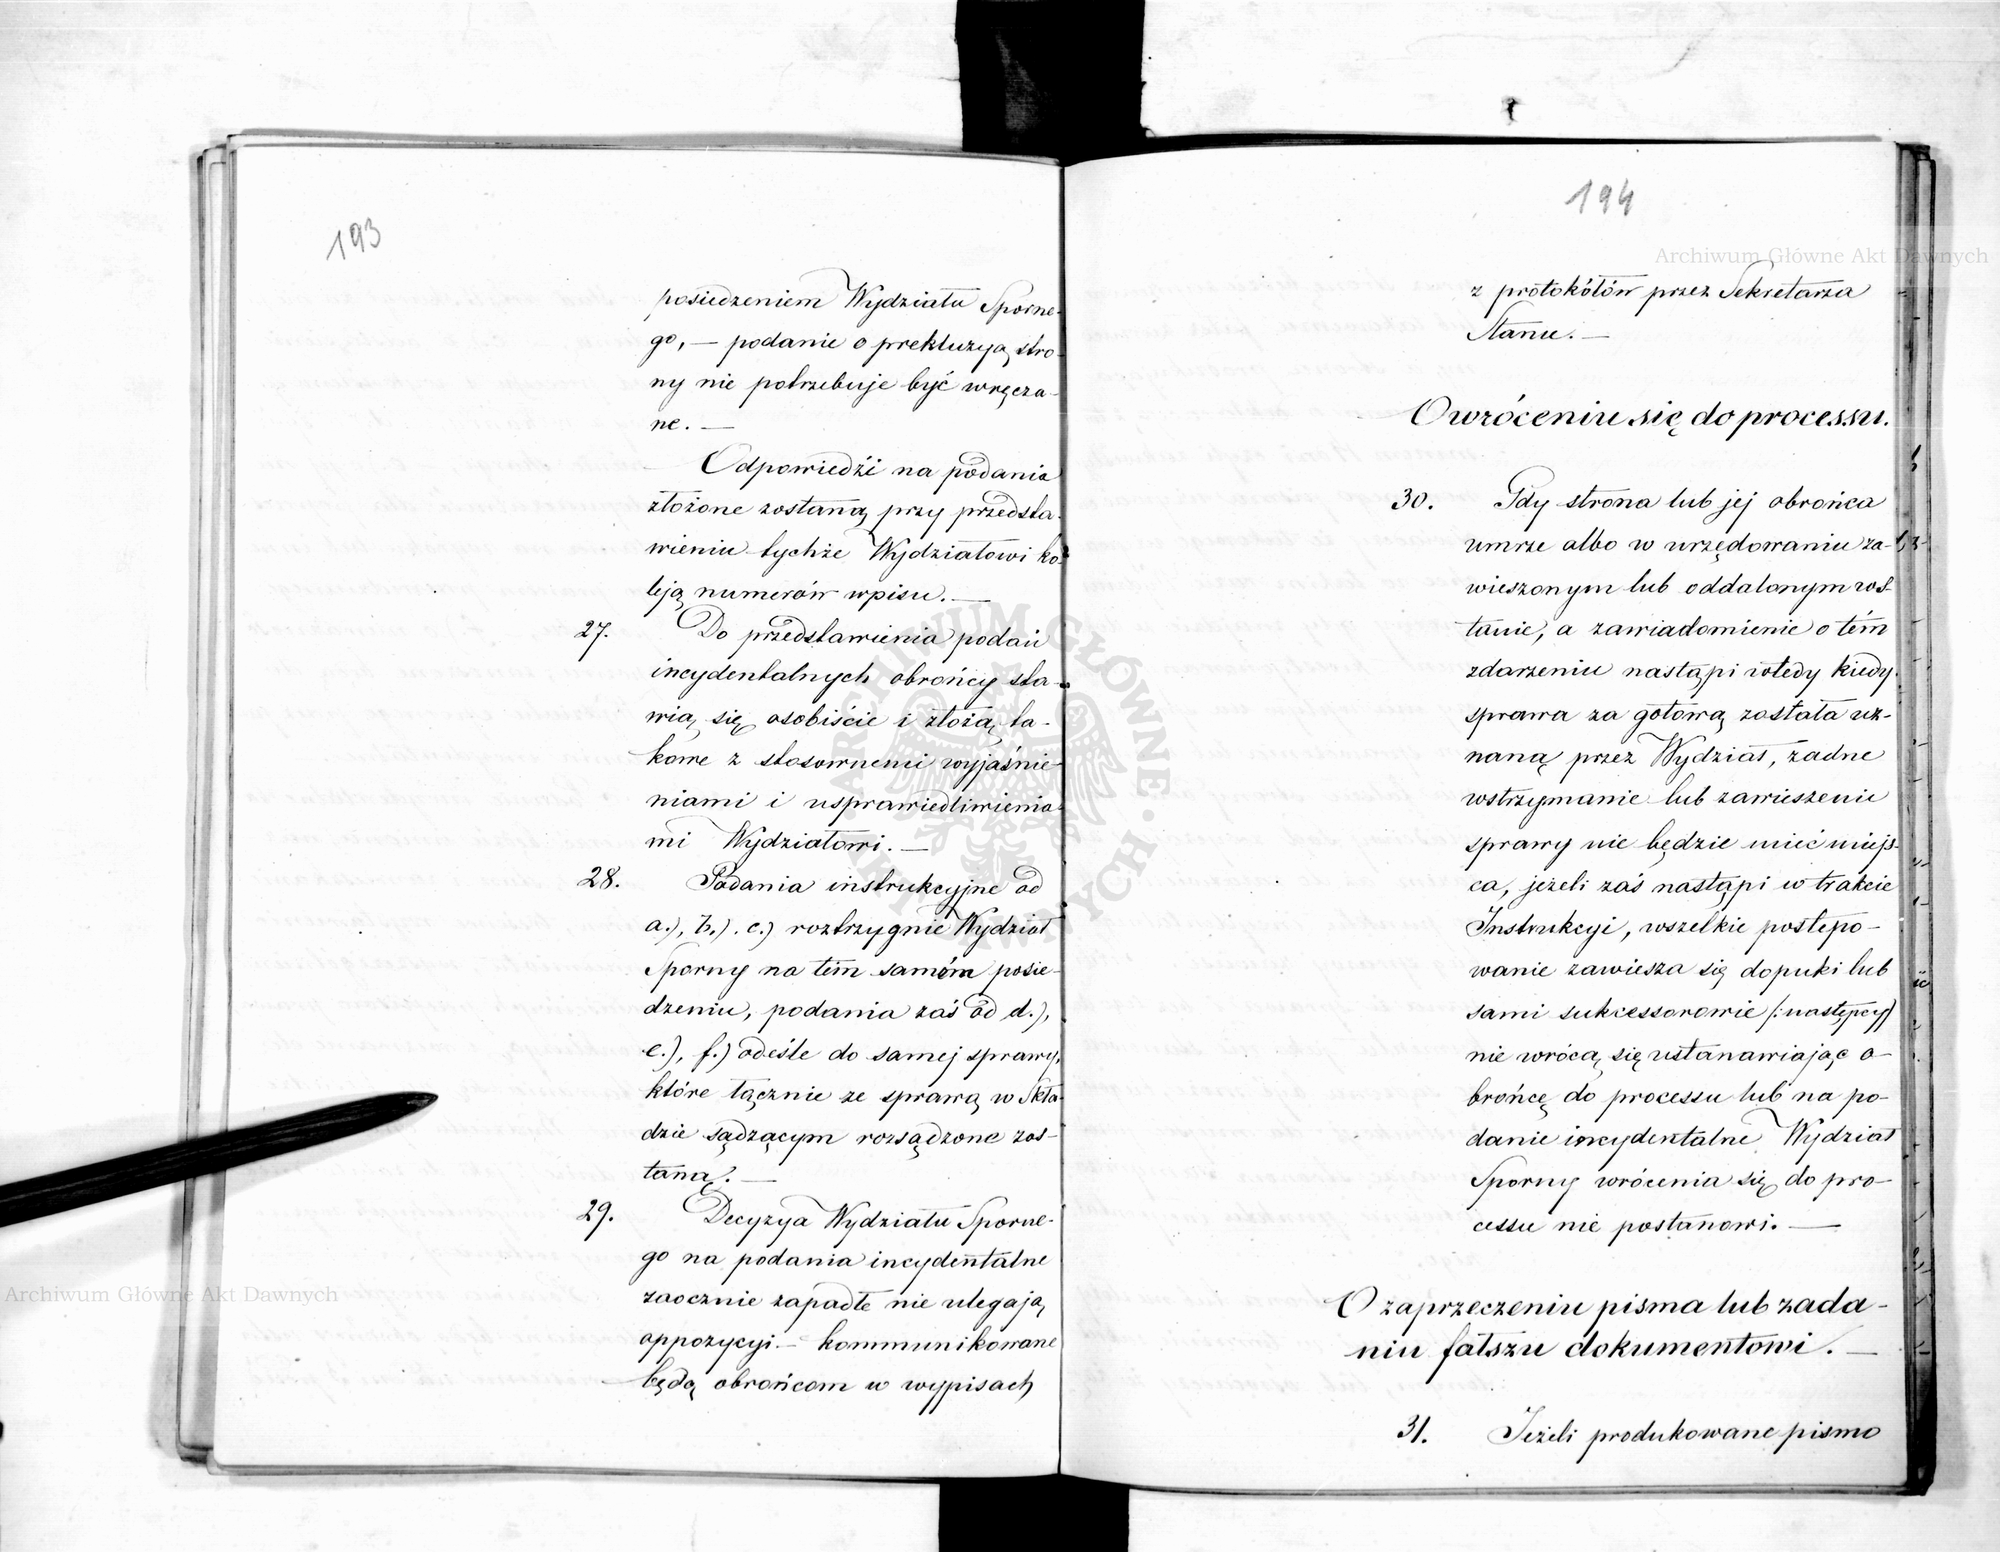 193
posiedzeniem Wydziału Sporne-
go, — podanie o prekluzyą stro-
ny nie potrzebuje być wręcza-
ne. —
Odpowiedźi na podania
złożone zostaną przy przedsta-
wieniu tychże Wydziałowi ko-
leją numerów wpisu. —
27. Do przedstawienia podań
incydentalnych obrońcy sta-
wią się osobiście i złożą ta-
kowe z stosownemi wyjaśnie-
niami i usprawiedliwienia-
mi Wydziałowi. —
28. Podania instrukcyjne od
a.), b.). c.) roztrzygnie Wydział
Sporny na tém samém posie-
dzeniu, podania zaś od d.),
e.), f.) odeśle do samej sprawy,
które łącznie ze sprawą w Skła-
dzie sądzącym rozsądzone zos-
taną. —
29. Decyzya Wydziału Sporne-
go na podania incydentalne
zaocznie zapadłe nie ulegają
oppozycyi. — kommunikowane
będą obrońcom w wypisach
194
z protokółów przez Sekretarza
Stanu. —
O wróceniu się do processu.
30. Gdy strona lub jej obrońca
umrze albo w urzędowaniu za-
wieszonym lub oddalonym zos-
tanie, a zawiadomienie o tém
zdarzeniu nastąpi wtedy kiedy
sprawa za gotową została uz-
naną przez Wydział, żadne
wstrzymanie lub zawieszenie
sprawy nie będzie mieć miejs-
ca, jeżeli zaś nastąpi w trakcie
Instrukcyi, wszelkie postępo-
wanie zawiesza się dopuki lub
sami sukcessorowie /:następcy/
nie wrócą się ustanawiając o-
brońcę do processu lub na po-
danie incydentalne Wydział
Sporny wrócenia się do pro-
cessu nie postanowi. —
O zaprzeczeniu pisma lub zada-
niu fałszu dokumentowi. —
31. Jeżeli produkowane pismo
Archiwum Główne Akt Dawnych
Archiwum Główne Akt Dawnych
ARCHIWUM GŁÓWNE AKT DAWNYCH